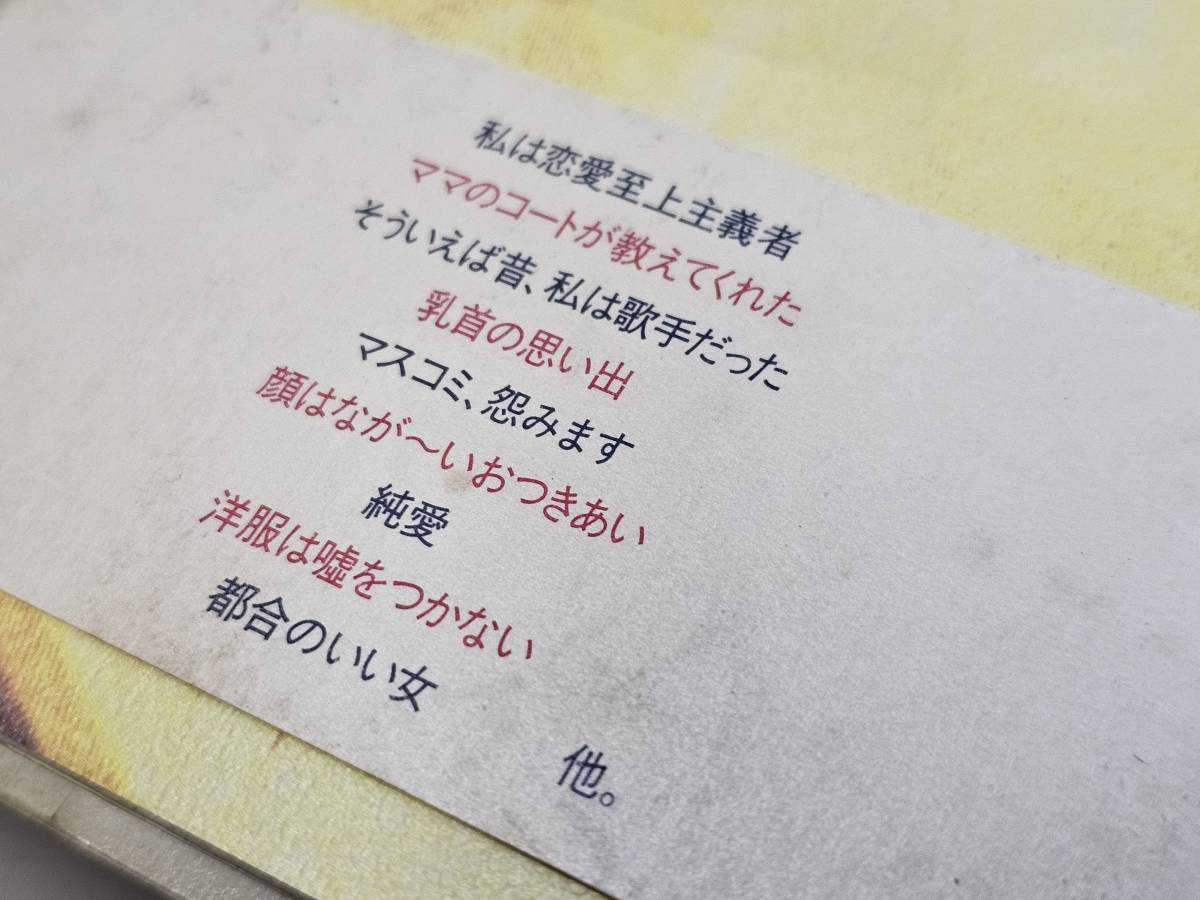 私は恋愛至上主義者
ママのコートが教えてくれた
そういえば昔、私は歌手だった
乳首の思い出
マスコミ、怨みます
顔はなが〜いおつきあい
純愛
洋服は嘘をつかない
都合のいい女
他。